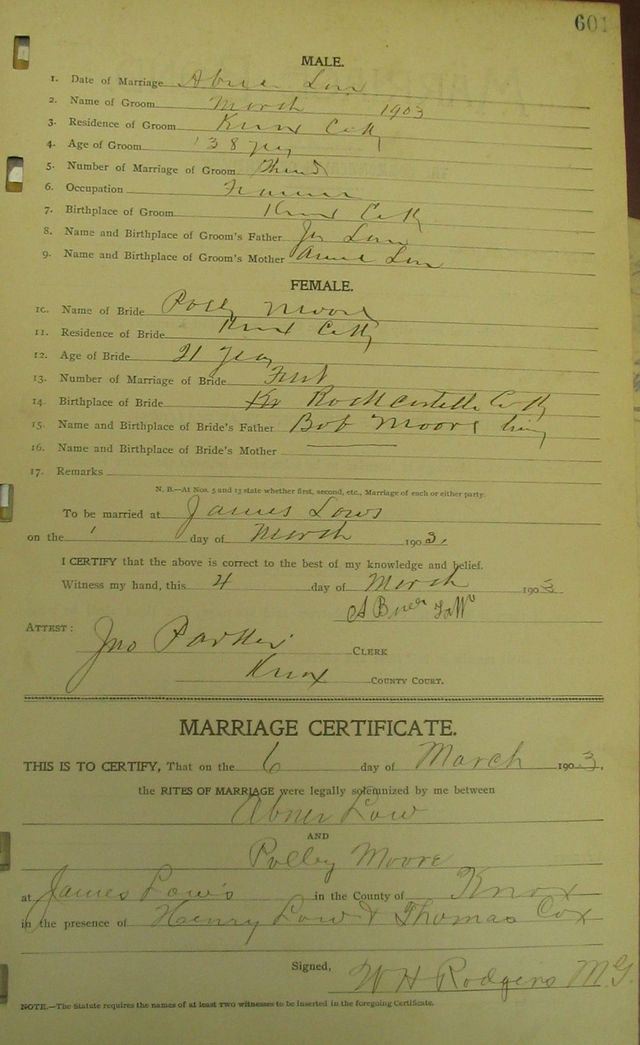 601
MALE.
1. Date of Marriage Abner Low
2. Name of Groom March 1903
3. Residence of Groom Knox Co Ky
4. Age of Groom 38 years
5. Number of Marriage of Groom Third
6. Occupation Farmer
7. Birthplace of Groom Knox Co Ky
8. Name and Birthplace of Groom's Father Low
9. Name and Birthplace of Groom's Mother Low
FEMALE.
10. Name of Bride Polly Moore
11. Residence of Bride Knox Co Ky
12. Age of Bride 21 years
13. Number of Marriage of Bride First
14. Birthplace of Bride Rockcastle Co Ky
15. Name and Birthplace of Bride's Father Bob Moore
16. Name and Birthplace of Bride's Mother
17. Remarks
N. B.—At Nos. 5 and 13 state whether first, second, etc., Marriage of each or either party.
To be married at James Lows
on the day of March 1903.
I CERTIFY that the above is correct to the best of my knowledge and belief.
Witness my hand, this 4 day of March 1903
Abner Low
ATTEST: Jno Parker CLERK
Knox COUNTY COURT.
MARRIAGE CERTIFICATE.
THIS IS TO CERTIFY, That on the 6 day of March 1903.
the RITES OF MARRIAGE were legally solemnized by me between
Abner Low
AND
Polley Moore
at James Low's in the County of Knox
in the presence of Henry Low & Thomas Cox
Signed, W H Rodgers M G
NOTE.—The Statute requires the names of at least two witnesses to be inserted in the foregoing Certificate.